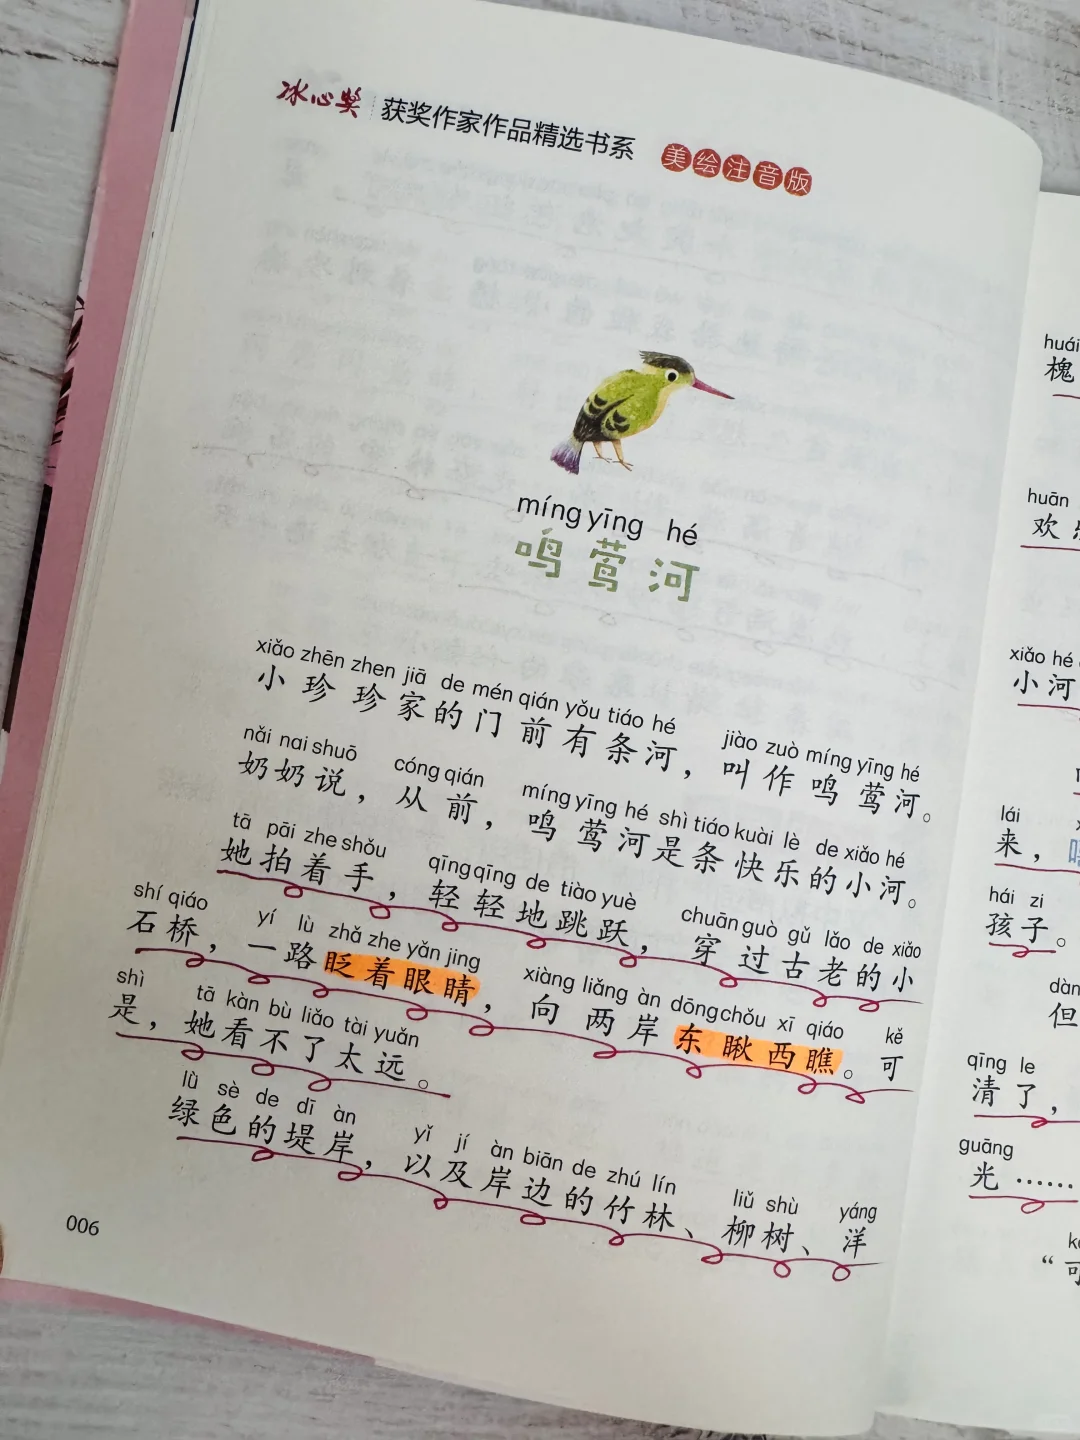 冰心奖 获奖作家作品精选书系 美绘注音版
míng yīng hé
鸣莺河
xiǎo zhēn zhen jiā de mén qián yǒu tiáo hé jiào zuò míng yīng hé
小珍珍家的门前有条河，叫作鸣莺河。
nǎi nai shuō cóng qián míng yīng hé shì tiáo kuài lè de xiǎo hé
奶奶说，从前，鸣莺河是条快乐的小河。
tā pāi zhe shǒu qīng qīng de tiào yuè chuān guò gǔ lǎo de xiǎo
她拍着手，轻轻地跳跃，穿过古老的小
shí qiáo yí lù zhǎ zhe yǎn jing xiàng liǎng àn dōng chǒu xī qiáo kě
石桥，一路眨着眼睛，向两岸东瞅西瞧。可
shì tā kàn bù liǎo tài yuǎn
是，她看不了太远。
lǜ sè de dī àn yǐ jí àn biān de zhú lín liǔ shù yáng
绿色的堤岸，以及岸边的竹林、柳树、洋
006
huái
槐
huān
欢
xiǎo hé
小河
lái
来，
hái zi
孩子。
dàn
但
qīng le
清了，
guāng
光……
“可